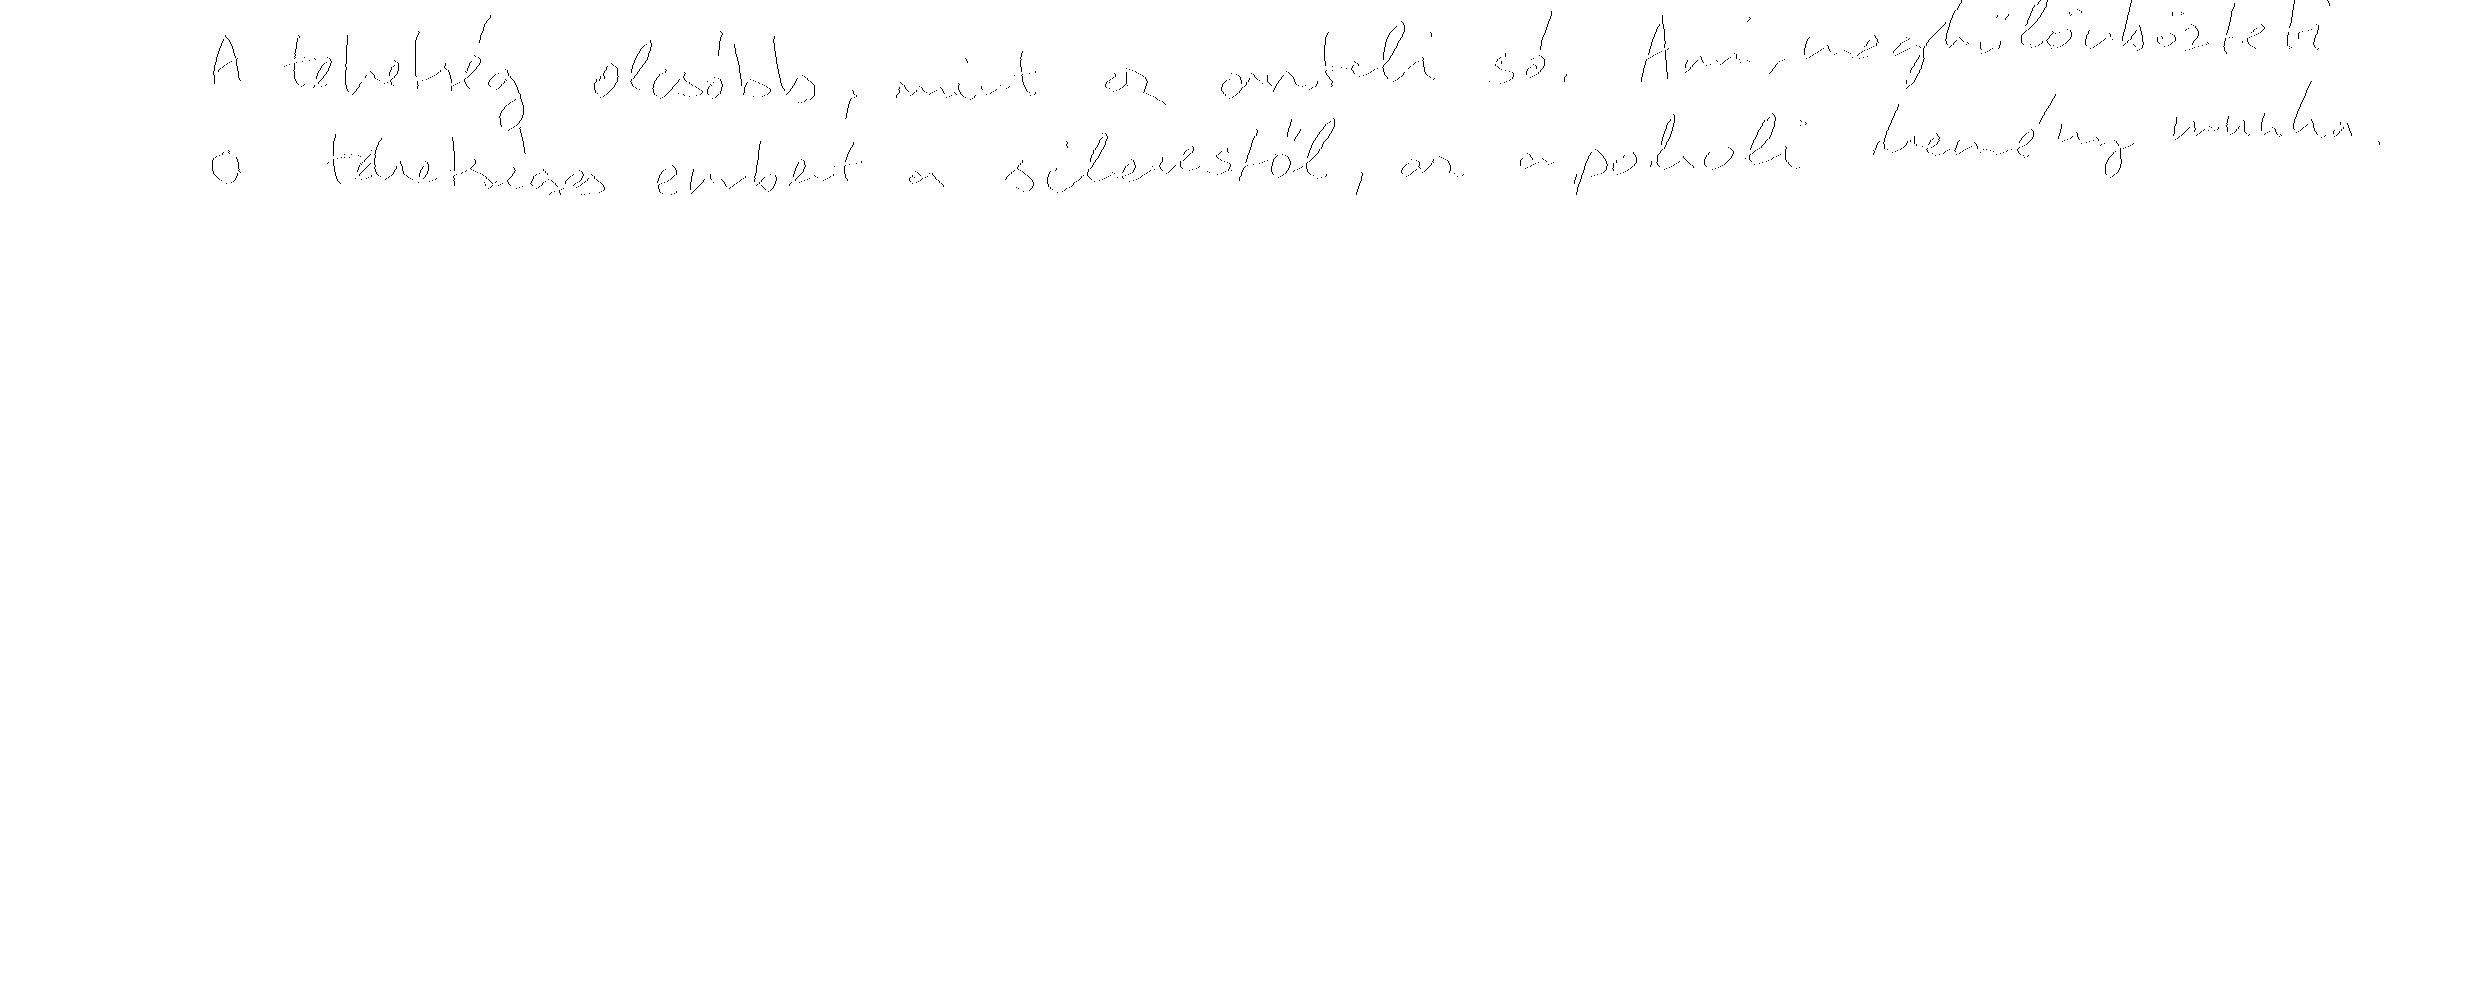 A tehetség olcsóbb, mint az asztali só. Ami megkülönbözteti
a tehetséges embert a sikerestől, az a pokoli kemény munka.